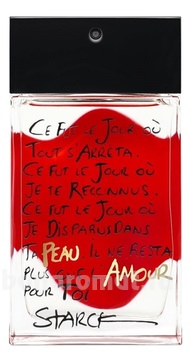 CE FUT LE JOUR OÙ
TOUT S'ARRETA.
CE FUT LE JOUR OÙ
JE TE RECONNUS.
CE FUT LE JOUR OÙ
JE DISPARUS DANS
TA PEAU IL NE RESTA
PLUS QUE L'AMOUR
POUR TOI
STARCK